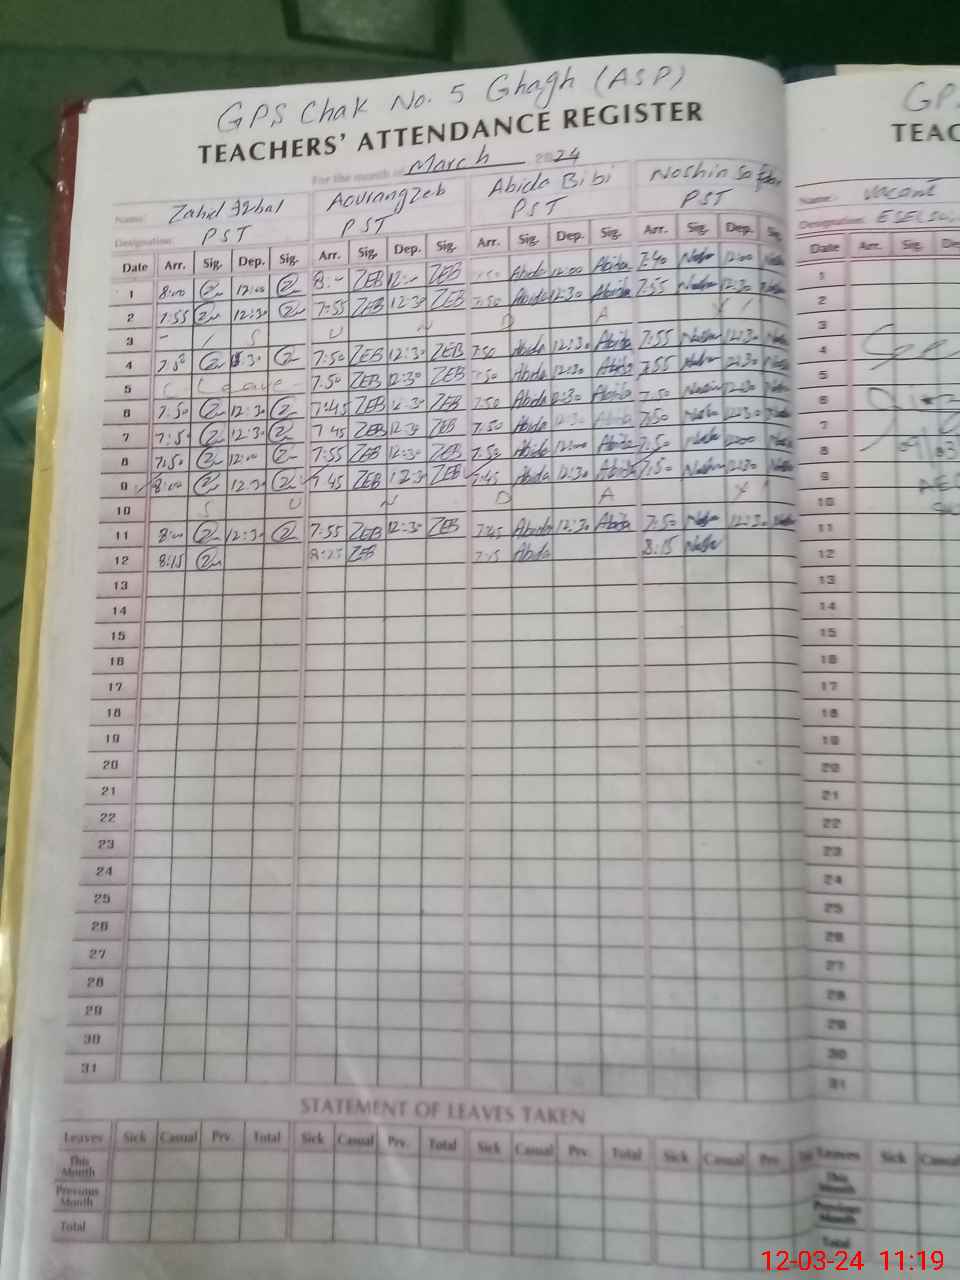 GPS Chak No. 5 Ghagh (ASP)
TEACHERS' ATTENDANCE REGISTER
For the month of March 2024
Name: Zahid Iqbal Aourangzeb Abida Bibi Noshin
Designation: PST PST PST PST
Date Arr. Sig. Dep. Sig. Arr. Sig. Dep. Sig. Arr. Sig. Dep. Sig. Arr. Sig. Dep.
1 8:00 12:00 8:- ZEB 12:- ZEB Abida 12:00 Abida 7:40 12:00
2 7:55 12:30 7:55 ZEB 12:30 ZEB 7:50 Abida 12:30 Abida 7:55 12:30
3 S U N D A Y
4 7:50 12:30 7:50 ZEB 12:30 ZEB 7:50 Abida 12:30 Abida 7:55 12:30
5 C Leave 7:50 ZEB 12:30 ZEB 7:50 Abida 12:30 Abida 7:55 12:30
6 7:50 12:30 7:45 ZEB 12:30 ZEB 7:50 Abida 12:30 Abida 7:50 12:30
7 7:50 12:30 7:45 ZEB 12:30 ZEB 7:50 Abida 12:30 Abida 7:50 12:30
8 7:50 12:00 7:55 ZEB 12:30 ZEB 7:50 Abida 12:00 Abida 7:50 12:00
9 8:00 12:30 7:45 ZEB 12:30 ZEB 7:45 Abida 12:30 Abida 7:50 12:30
10 S U N D A Y
11 8:00 12:30 7:55 ZEB 12:30 ZEB 7:45 Abida 12:30 Abida 7:50 12:30
12 8:15 8:25 ZEB 7:15 Abida 8:15
13
14
15
16
17
18
19
20
21
22
23
24
25
26
27
28
29
30
31
STATEMENT OF LEAVES TAKEN
Leaves Sick Casual Prv. Total Sick Casual Prv. Total Sick Casual Prv. Total Sick Casual Prv.
This Month
Previous Month
Total
GP
TEAC
Name: Vacant
Designation: ESE
Date Arr. Sig.
1
2
3
4
5
6
7
8
9
10
11
12
13
14
15
16
17
18
19
20
21
22
23
24
25
26
27
28
29
30
31
Leaves Sick Casual
This Month
Previous Month
Total
12-03-24 11:19